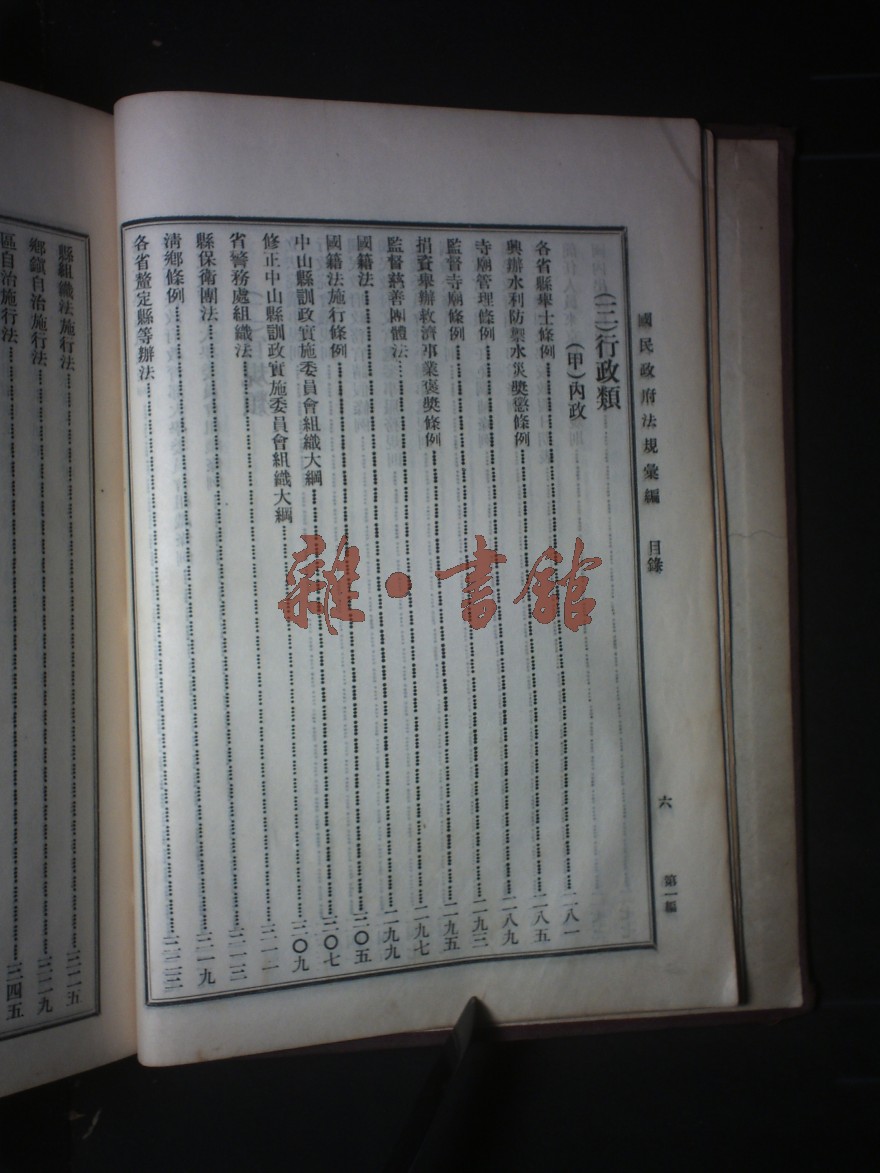 國民政府法規彙編 目錄 六 第一編
(三)行政類
(甲)內政
各省縣舉士條例……二八一
興辦水利防禦水災獎懲條例……二八五
寺廟管理條例……二八九
監督寺廟條例……二九三
捐資舉辦救濟事業褒獎條例……二九五
監督慈善團體法……二九七
國籍法……二九九
國籍法施行條例……三〇五
中山縣訓政實施委員會組織大綱……三〇七
修正中山縣訓政實施委員會組織大綱……三〇九
省警務處組織法……三一一
縣保衛團法……三一三
清鄉條例……三一九
各省釐定縣等辦法……三二三
縣組織法施行法……三二五
鄉鎮自治施行法……三二九
區自治施行法……三四五
雜·書館